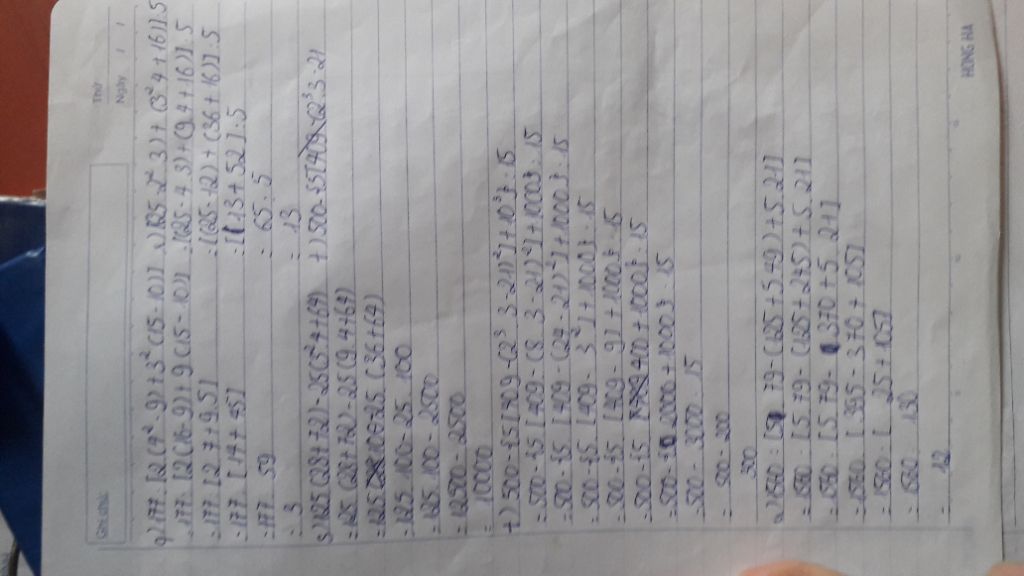 Thứ
Ngày / /
Ghi chú:
q) 177: [2(4²-9)+3²(15-10)]
= 177: [2(16-9)+9(15-10)]
= 177: [2.7+9.5]
= 177: [14+45]
= 177: 59
= 3
v) [(25-2².3)+(3².4+16)]:5
= [(25-4.3)+(9.4+16)]:5
= [(25-12)+(36+16)]:5
= [13+52]:5
= 65:5
= 13
s) 125(28+72)-25(3².4+64)
= 125(28+72)-25(9.4+64)
= 125.100-25(36+64)
= 125.100-25.100
= 125.100-2500
= 12500-2500
= 10000
t) 500-{5[409-(2³.3-21)²]+10³}:15
= 500-{5[409-(8.3-21)²]+1000}:15
= 500-{5[409-(24-21)²]+1000}:15
= 500-{5[409-3²]+1000}:15
= 500-{5[409-9]+1000}:15
= 500-{5.400+1000}:15
= 500-{2000+1000}:15
= 500-3000:15
= 500-200
= 300
= 1560: [5.79-(125+245)+5.21]
= 1560: [5.79-370+5.21]
= 1560: [395-370+105]
= 1560: [25+105]
= 1560: 130
= 12
HONG HA